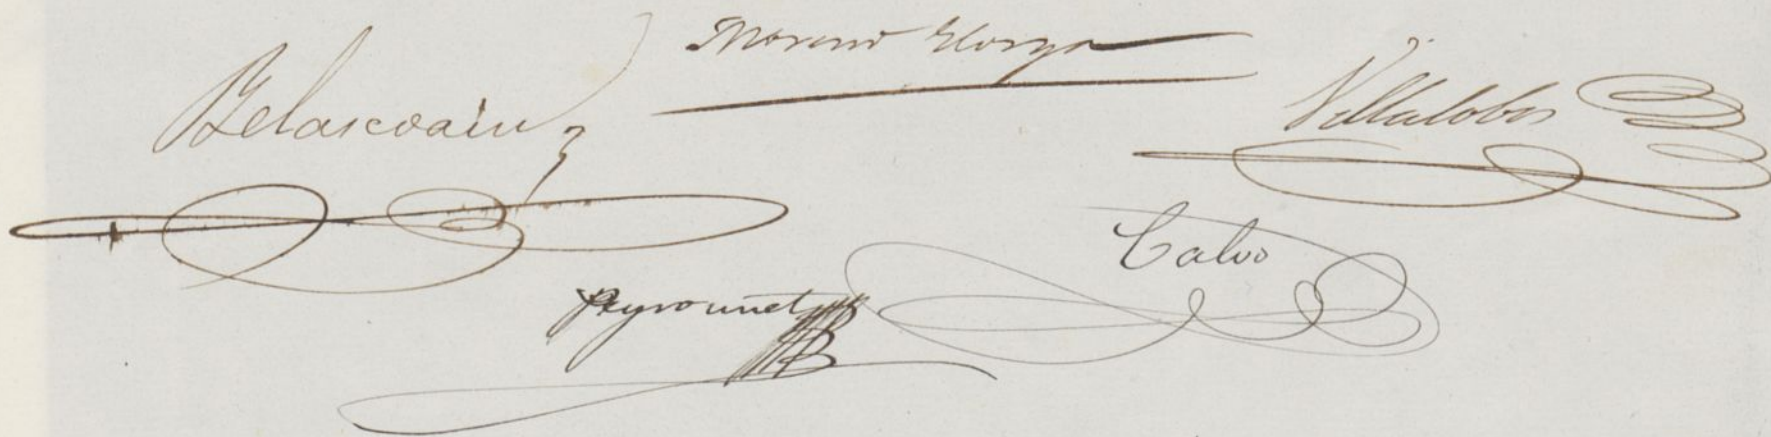 Belascoain
Moreno Elorza
Villalobos
Calvo
Peyronnet